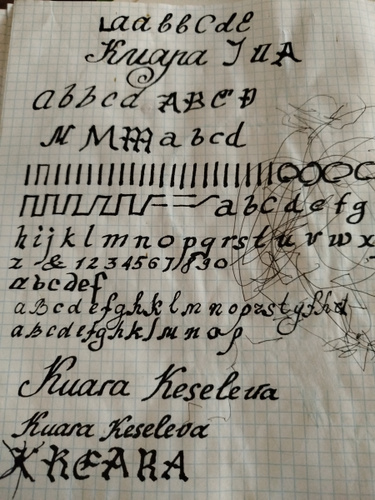 Laabbcdε
Kuapa I II A
abbcd ABCD
N MMM abcd
abcdefg
hijklmnopqrstuvwx
z & 1234567890
abcdef
aBcdefghklmnoprstyfhd
abcdefghklmnop
Kuara Keseleva
Kuara Keseleva
KEARA